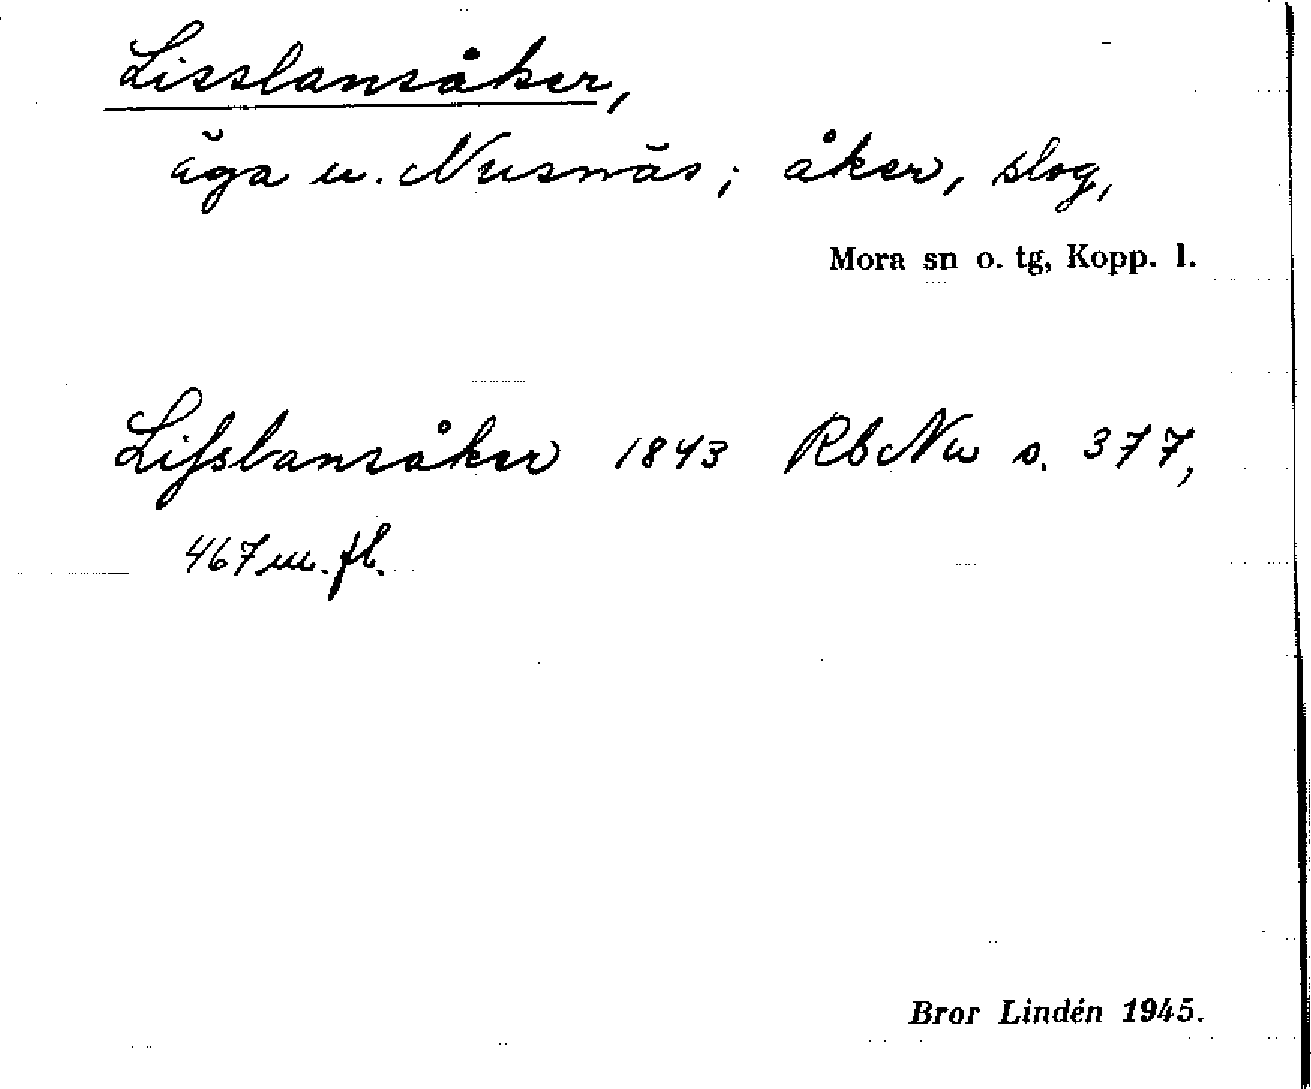 Lisslansåker,
äga u. Nusnäs; åker, slog,
Mora sn o. tg, Kopp. l.
Lifslansåker 1843 RbNu s. 377,
467 m. fl.
Bror Lindén 1945.